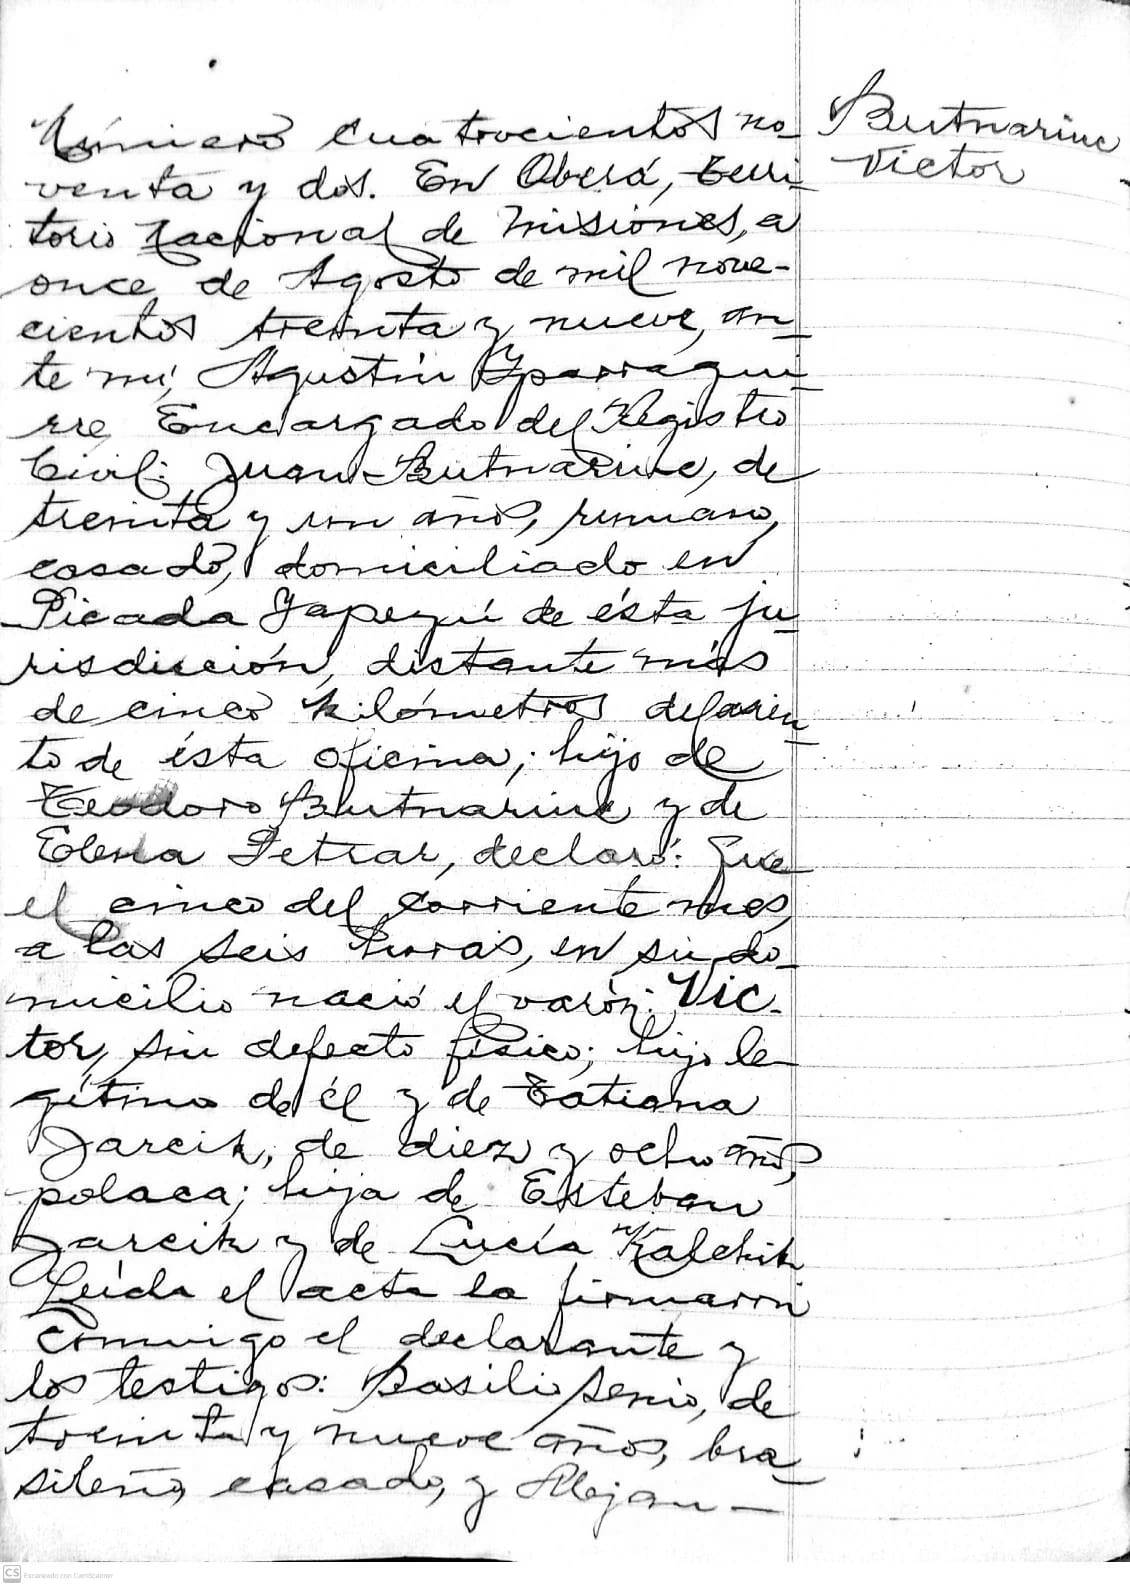 Número cuatrocientos no-
venta y dos. En Oberá, Terri-
torio Nacional de Misiones, a
once de Agosto de mil nove-
cientos treinta y nueve, an-
te mí, Agustín Yparragui-
rre, Encargado del Registro
Civil: Juan Butnariuc, de
treinta y un años, rumano,
casado, domiciliado en
Picada Yapeyú de ésta ju-
risdicción, distante más
de cinco kilómetros del asien-
to de ésta oficina; hijo de
Teodoro Butnariuc y de
Elena Petrar, declaró: Que
el cinco del corriente mes,
a las seis horas, en su do-
micilio nació el varón: Vic-
tor, sin defecto físico; hijo le-
gítimo de él y de Tatiana
Jarcik, de diez y ocho años,
polaca; hija de Esteban
Jarcik y de Lucía Kalchik
Leída el acta la firmaron
conmigo el declarante y
los testigos: Basilio Senio, de
treinta y nueve años, bra-
sileño, casado, y Alejan-
Butnariuc
Victor
CS Escaneado con CamScanner